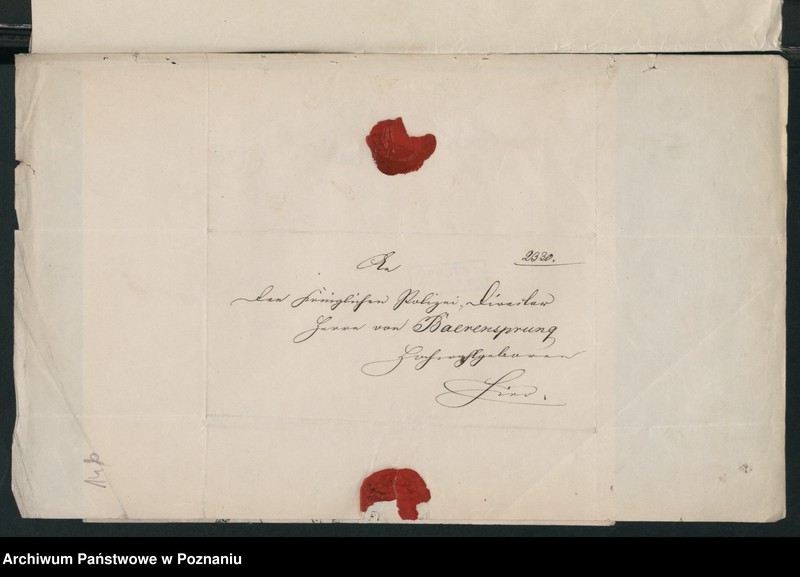 2330.
An
den Königlichen Polizei-Director
Herrn von Baerensprung
Hochwohlgeboren
Hier.
14b
Archiwum Państwowe w Poznaniu